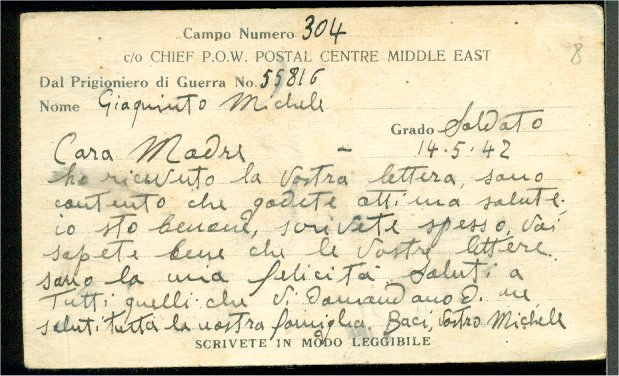 Campo Numero 304
c/o CHIEF P.O.W. POSTAL CENTRE MIDDLE EAST
8
Dal Prigioniero di Guerra No. 55816
Nome Giaquinto Michele
Grado Soldato
14.5.42
Cara Madre -
ho ricevuto la vostra lettera, sono
contento che godete ottima salute,
io sto benone, scrivete spesso, voi
sapete bene che le vostre lettere
sono la mia felicità. Saluti a
tutti quelli che vi domandano di me
saluti tutta la nostra famiglia. Baci, vostro Michele
SCRIVETE IN MODO LEGGIBILE